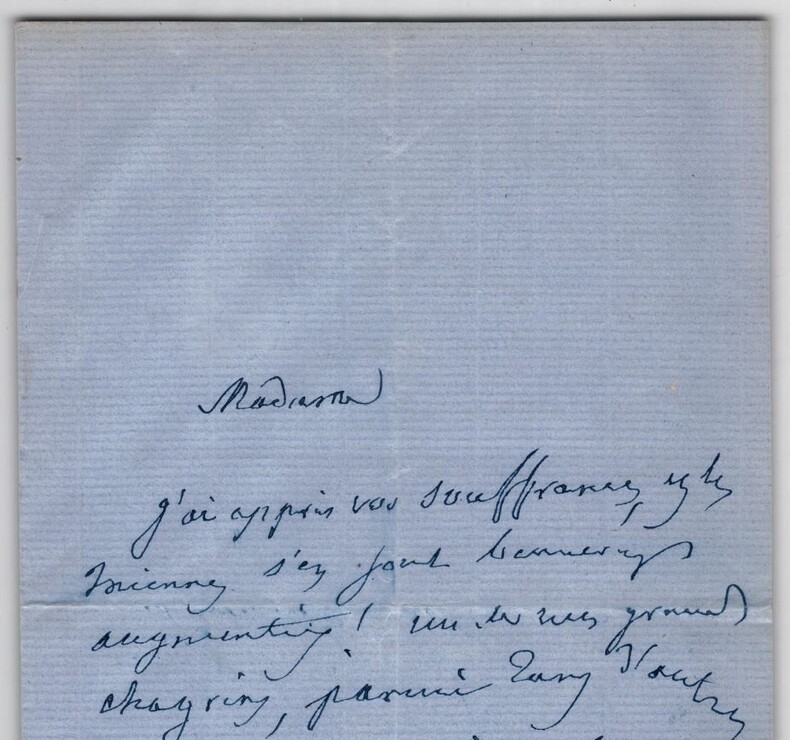 Madame
j'ai appris vos souffrances, et les
miennes s'en sont beaucoup
augmentées! un de mes grands
chagrins, parmi tant d'autres